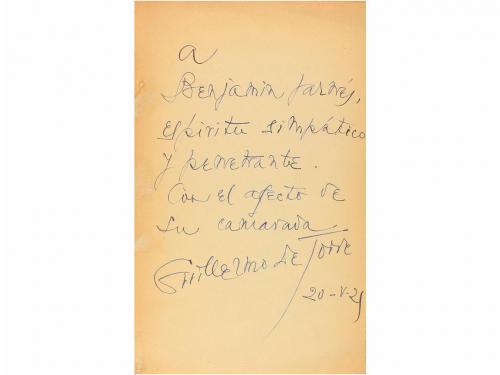 a
Benjamín Jarnés,
espíritu simpático
y penetrante.
Con el afecto de
su camarada
Guillermo de Torre
20-V-25